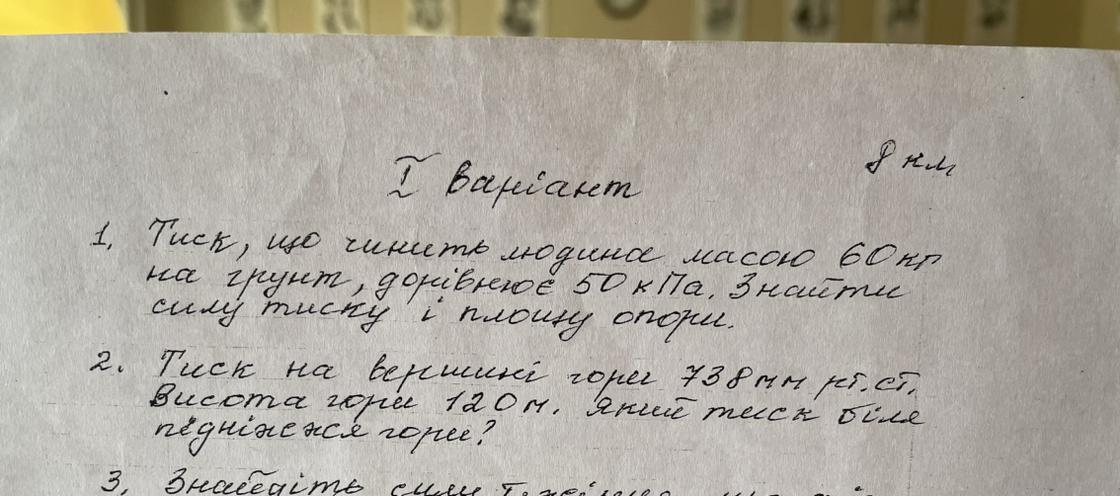 8 кл
I варіант
1. Тиск, що чинить людина масою 60 кг
на грунт, дорівнює 50 кПа. Знайти
силу тиску і площу опори.
2. Тиск на вершині гори 738 мм рт. ст.
Висота гори 120 м. Який тиск біля
підніжжя гори?
3. Знайдіть силу